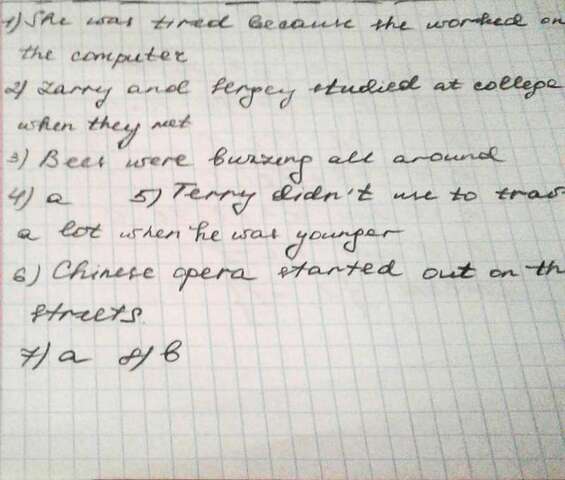 1) She was tired because she worked on
the computer
2) Larry and Sergey studied at college
when they met
3) Bees were buzzing all around
4) a 5) Terry didn't use to trav
a lot when he was younger
6) Chinese opera started out on th
streets.
7) a 8) b